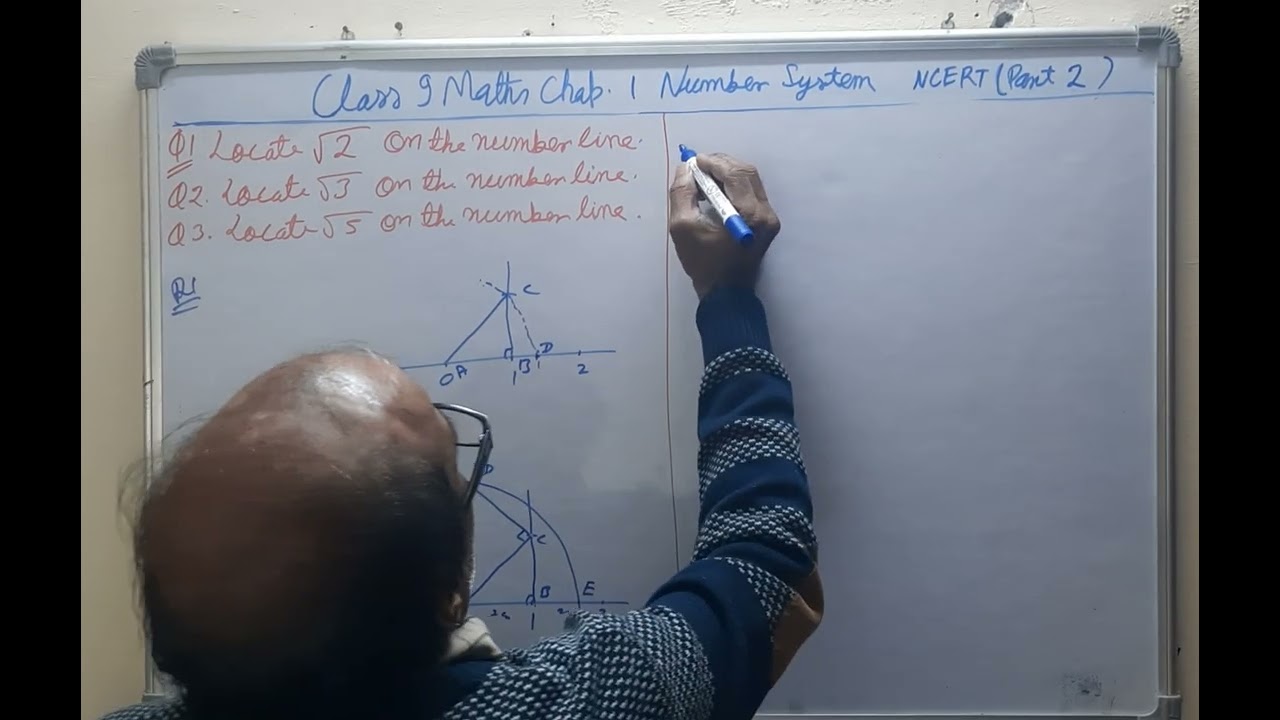 Class 9 Maths Chap. 1 Number System NCERT (Part 2)
Q1 Locate √2 on the number line.
Q2. Locate √3 on the number line.
Q3. Locate √5 on the number line.
C
O A 1 B D 2
D
C
B E
1